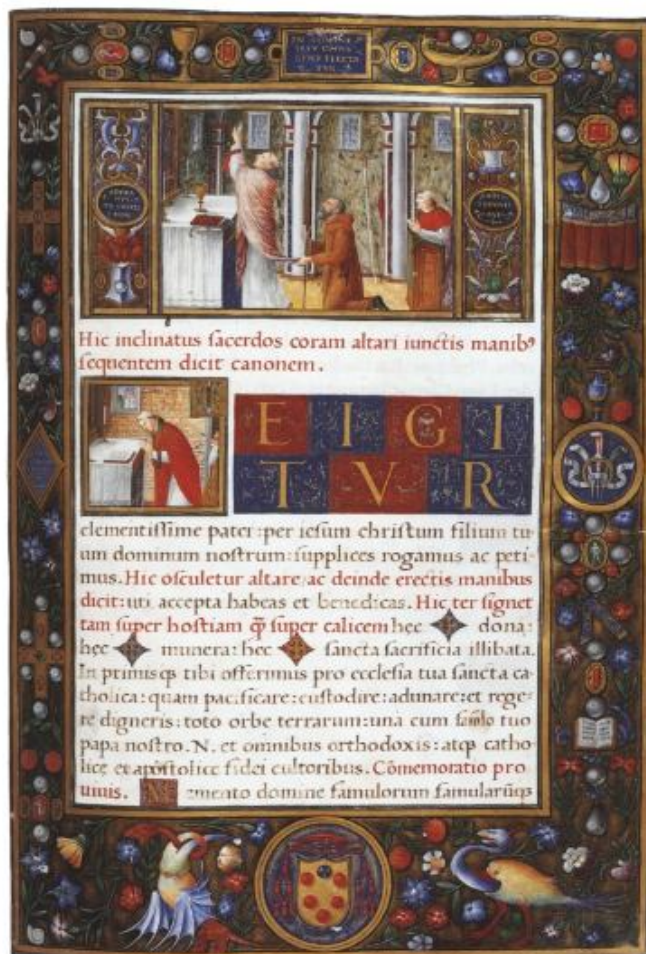 Hic inclinatus sacerdos coram altari iunctis manibꝰ
sequentem dicit canonem.
E I G I
T V R
clementissime pater: per iesum christum filium tu-
um dominum nostrum: supplices rogamus ac peti-
mus. Hic osculetur altare, ac deinde erectis manibus
dicit: uti accepta habeas et benedicas. Hic ter signet
tam super hostiam qp̃ super calicem hec dona:
hec munera: hec sancta sacrificia illibata.
In primisqꝫ tibi offerimus pro ecclesia tua sancta ca-
tholica: quam pacificare: custodire: adunare: et rege-
re digneris: toto orbe terrarum: una cum famlo tuo
papa nostro. N. et omnibus orthodoxis: atqꝫ catho-
lice et apostolice fidei cultoribus. Cõmemoratio pro
uiuis. M emento domine famulorum famularũqꝫ